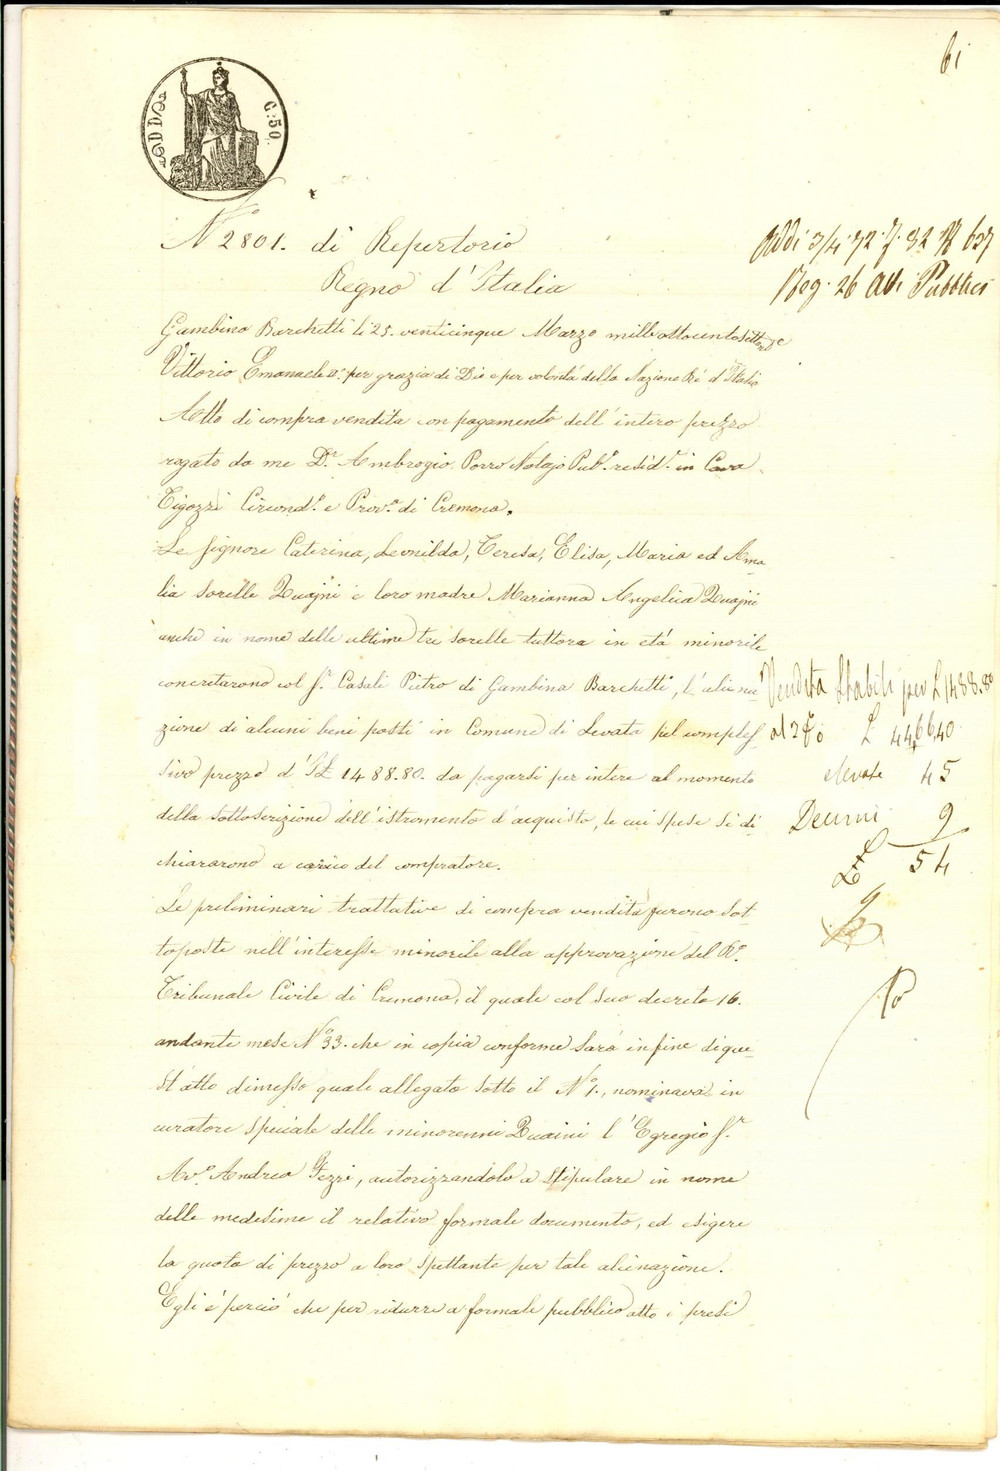 61
C: 50.
N.° 2801. di Repertorio
Regno d'Italia
Addi 3/4 72 f. 82 N 637
Reg. 26 Atti Pubblici
Gambina Barchetti li 25. venticinque Marzo mille ottocento
Vittorio Emanuele II.° per grazia di Dio e per volontà della Nazione Rè d'Italia
Atto di compra vendita con pagamento dell'intero prezzo
rogato da me D.r Ambrogio Porro Notajo Pub.° resid.e in Cava
Tigozzi Circond.° e Prov.a di Cremona.
Le Signore Caterina, Leonilda, Teresa, Elisa, Maria ed Ama
lia sorelle Quajni e loro madre Marianna Angelica Quajni
anche in nome delle ultime tre sorelle tuttora in età minorile
concretarono col S.r Casali Pietro di Gambina Barchetti, l'aliena
zione di alcuni beni posti in Comune di Levata pel comples
sivo prezzo d'It.£ 1488.80. da pagarsi per intero al momento
della sottoscrizione dell'istromento d'acquisto, le cui spese si di
chiararono a carico del compratore.
Vendita Stabili per £ 1488.80
£ 44,66,40
elevate 45
Decimi 9
£ 54
Le preliminari trattative di compra vendita furono sot
toposte nell'interesse minorile alla approvazione del R.°
Tribunale Civile di Cremona, il quale col suo decreto 16.
andante mese N.° 33. che in copia conforme sarà infine di que
st'atto dimesso quale allegato sotto il N.° 1., nominava in
curatore speciale delle minorenni Quaini l'Egregio S.r
Av.° Andrea Pezzi, autorizzandolo a stipulare in nome
delle medesime il relativo formale documento, ed esigere
la quota di prezzo a loro spettante per tale alienazione.
Egli è perciò che per ridurre a formale pubblico atto i presi